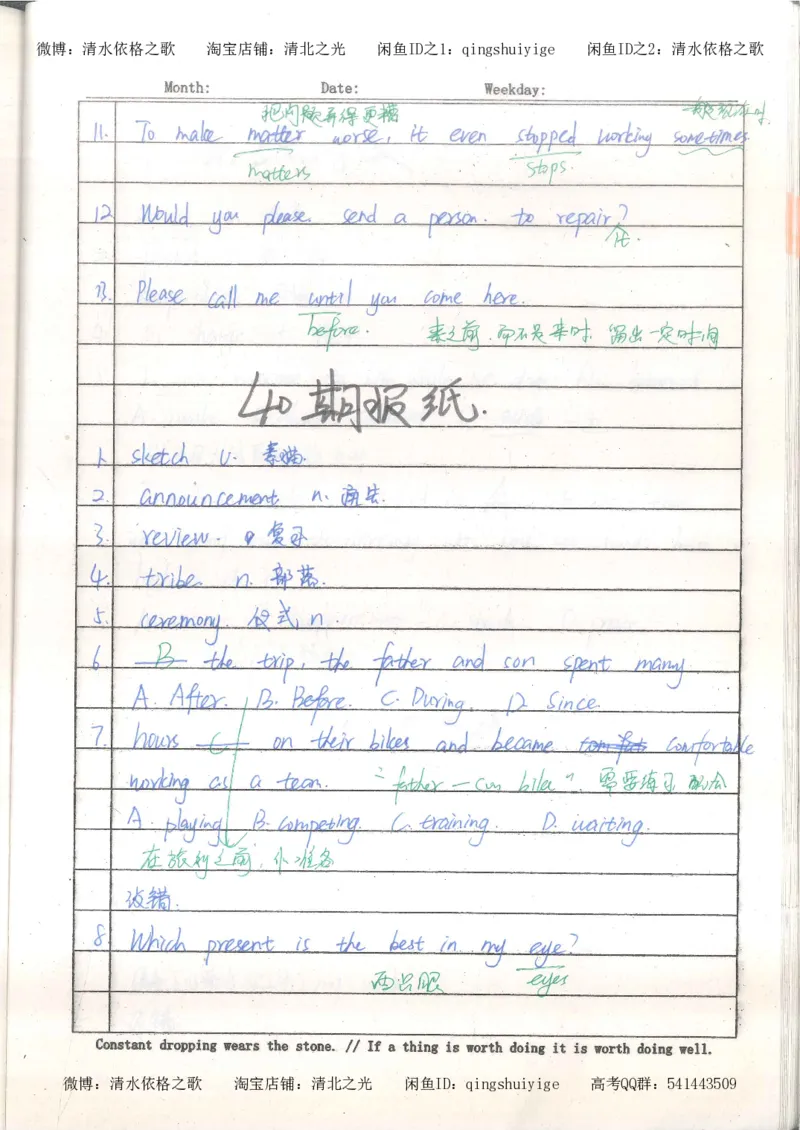 微博：清水依格之歌 淘宝店铺：清北之光 闲鱼ID之1：qingshuiyige 闲鱼ID之2：清水依格之歌
Month: Date: Weekday:
把问题弄得更糟 一般现在时.
11. To make matter worse, it even stopped working sometimes.
matters stops.
12 Would you please send a person. to repair?
it.
13. Please call me until you come here.
before. 来之前,而不是来时,留出一定时间
40期报纸.
1. sketch v. 素描.
2. announcement n.
3. review. 复习
4. tribe n. 部落.
5. ceremony. 仪式 n.
6. B the trip, the father and son spent many
A. After. B. Before. C. During. D. Since.
7. hours C on their bikes and became comfortable
working as a team. "father-son bike", 需要练习配合
A. playing B. competing. C. training. D. waiting.
在旅行之前,小准备
改错.
8. Which present is the best in my eye?
两只眼 eyes
Constant dropping wears the stone. // If a thing is worth doing it is worth doing well.
微博：清水依格之歌 淘宝店铺：清北之光 闲鱼ID：qingshuiyige 高考QQ群：541443509